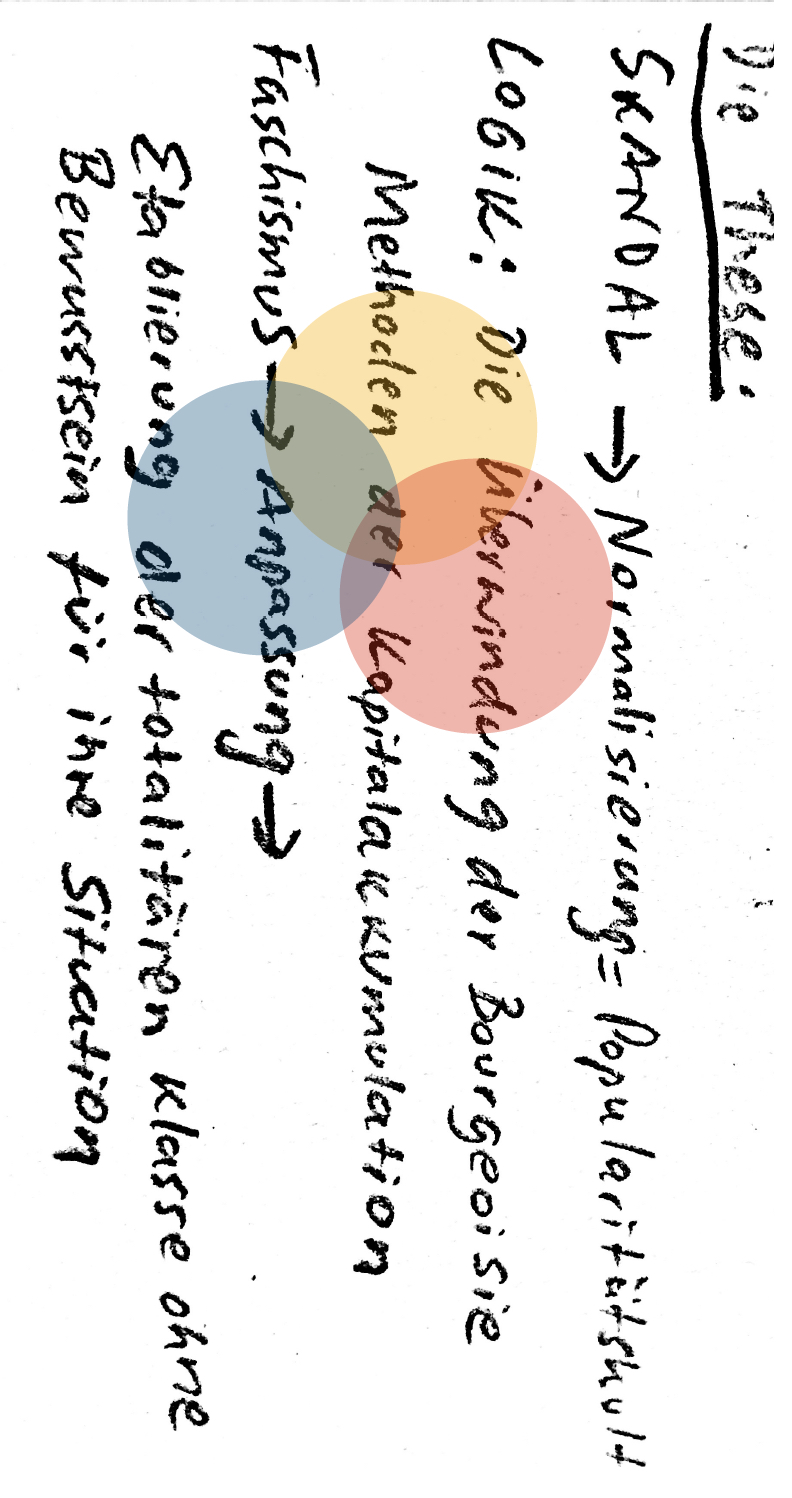 Die These:
SKANDAL → Normalisierung = Popularitätskult
LOGIK: Die Überwindung der Bourgeoisie
Methoden der Kapitalakkumulation
Faschismus → Anpassung →
Etablierung der totalitären Klasse ohne
Bewusstsein für ihre Situation